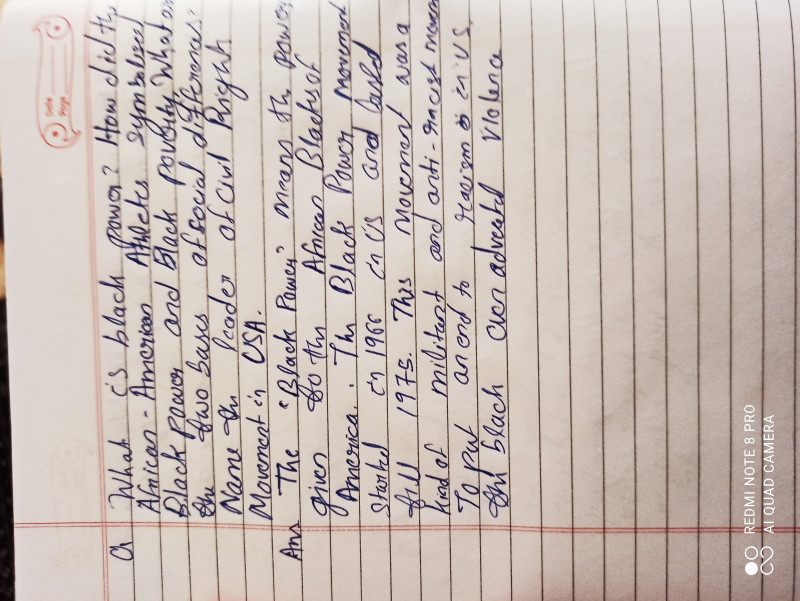 Date
Page
Q What is black power? How did th
African-American Athletes symbolised
Black power and Black poverty. What are
the two bases of social differences?
Name the leader of Civil Right
Movement in USA.
Ans The "Black Power" means the power
given to the African Blacks of
America. The Black Power Movement
started in 1966 in US and lasted
till 1975. This movement was a
kind of militant and anti-racist move
To put an end to racism in US.
the black even advocated violence
REDMI NOTE 8 PRO
AI QUAD CAMERA